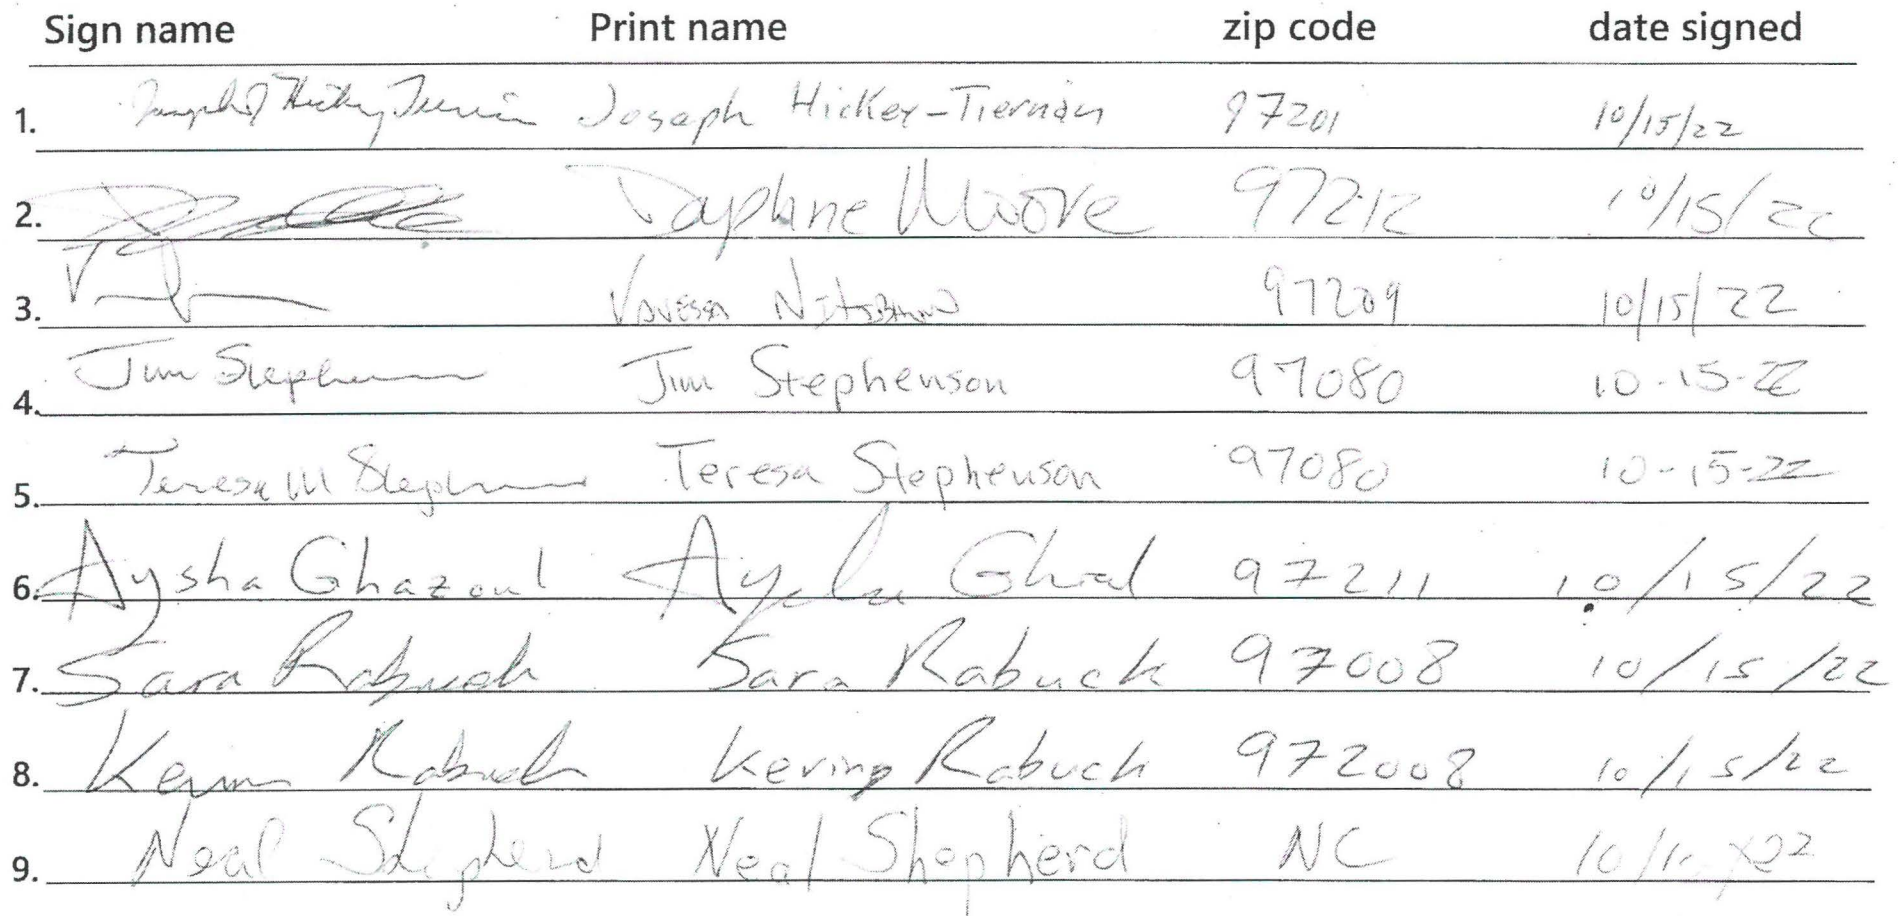 Sign name Print name zip code date signed
1. Joseph Hickey-Tiernan 97201 10/15/22
2. Daphne Moore 97212 10/15/22
3. Vanessa 97209 10/15/22
4. Jim Stephenson Jim Stephenson 97080 10-15-22
5. Teresa M Stephenson Teresa Stephenson 97080 10-15-22
6. Aysha Ghazoul 97211 10/15/22
7. Sara Rabuck Sara Rabuck 97008 10/15/22
8. Kevin Rabuck Kevin Rabuck 972008 10/15/22
9. Neal Shepherd Neal Shepherd NC